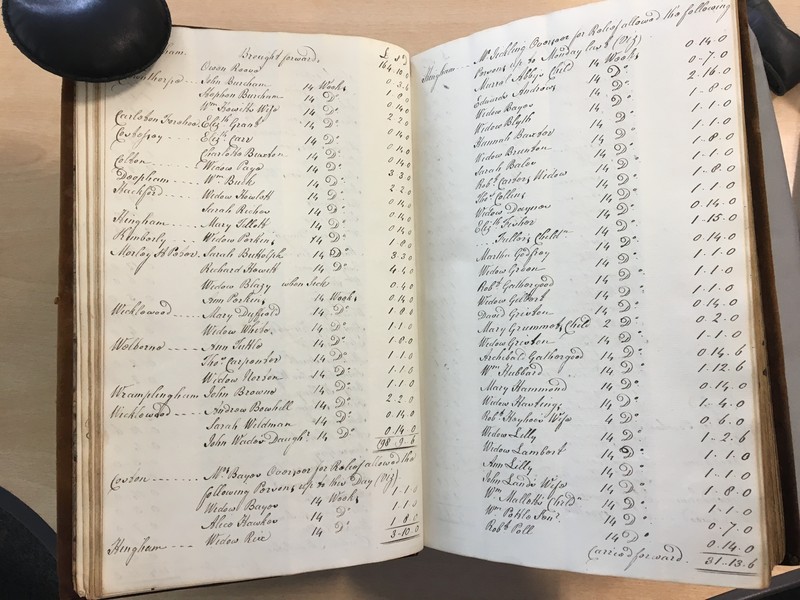 Hingham Brought forward £ s d
Owen Reeve 164.10.0
Crownthorpe John Burcham 14 Weeks 0.3.6
Stephen Burcham 14 Do
Wm Howitts Wife 14 Do 0.14.0
Carleton Forehoe Elizth Grant 14 Do 2.2.0
Costessey Elizth Carr 14 Do 0.14.0
Charlotte Buxton 14 Do 0.14.0
Colton Widow Page 14 Do 0.14.0
Deopham Wm Buck 14 Do 3.3.0
Hackford Widow Howlett 14 Do 2.2.0
Sarah Richer 14 Do 0.14.0
Hingham Mary Tillott 14 Do 0.14.0
Kimberly Widow Parkins 14 Do 0.14.0
Morley St Peter Sarah Buttolph 14 Do 1.8.0
Richard Howett 14 Do 3.3.0
Widow Blazy when sick 4.4.0
Ann Parkins 14 Weeks 0.4.0
Wicklewood Mary Duffield 14 Do 0.14.0
Widow White 14 Do 1.8.0
Welborne Ann Tuttle 14 Do 1.1.0
Thos Carpenter 14 Do 1.1.0
Widow Norton 14 Do 1.1.0
Wramplingham John Browne 14 Do 1.1.0
Wicklewood Andrew Bowhill 14 Do 2.2.0
Sarah Weldman 14 Do 0.14.0
John Wades Daughr 14 Do 0.14.0
198.9.6
Coston Mr Bayes Overseer for Relief allowed the
following Persons up to this Day (Viz)
Widow Bayes 14 Weeks 1.1.0
Alice Hawkes 14 Do 1.1.0
Hingham Widow Rix 14 Do 1.8.0
3.10.0
Hingham Mr Jickling Overseer for Relief allowed the following
Persons up to Monday last (Viz)
Abbys Child 14 Weeks 0.14.0
Edmund Andrews 14 Do 0.7.0
Widow Bayes 14 Do 2.16.0
Widow Blyth 14 Do 1.8.0
Hannah Baxter 14 Do 1.1.0
Widow Brunton 14 Do 1.1.0
Sarah Bales 14 Do 1.8.0
Robt Carters Widow 14 Do 1.1.0
Thos Collins 14 Do 1.8.0
Widow Daynes 14 Do 1.1.0
Elizth Fisher 14 Do 0.14.0
Fullers Childn 14 Do 1.15.0
Martha Godfrey 14 Do 0.14.0
Widow Green 14 Do 1.1.0
Robt Gathergood 14 Do 1.1.0
Widow Gilbert 14 Do 1.1.0
David Greston 14 Do 0.14.0
Mary Grummets Child 2 Do 0.2.0
Widow Greston 14 Do 1.1.0
Archibal. Gathergood 14 Do 0.14.6
Wm Hubbard 14 Do 1.12.6
Mary Hammond 14 Do 0.14.0
Widow Hastings 14 Do 1.4.0
Robt Hayhoes Wife 4 Do 0.6.0
Widow Lilly 14 Do 1.2.6
Widow Lambert 14 Do 1.1.0
Ann Lilly 14 Do 1.1.0
John Lunds Wife 14 Do 1.8.0
Wm Malletts Childn 14 Do 1.1.0
Wm Potts Junr 14 Do 0.7.0
Robt Poll 14 Do 0.14.0
Carried forward 31.13.6